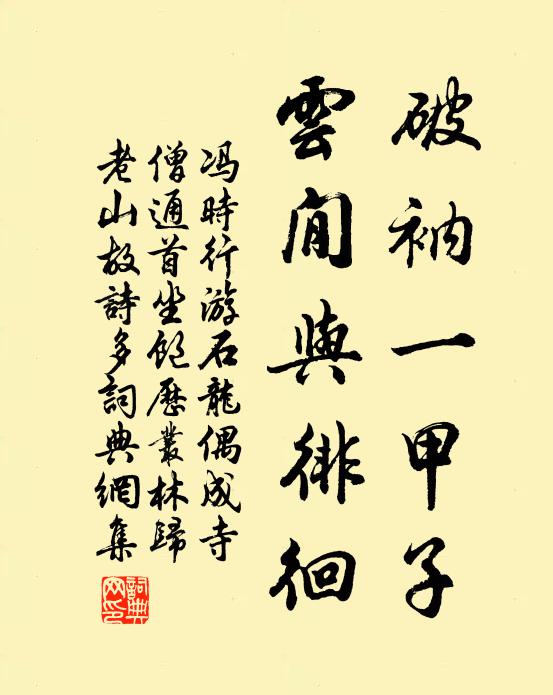 破衲一甲子
雲間與徘徊
馮時行游石龍偶成寺
僧通首坐飽歷叢林歸
老山故詩多詞典網集
詞典網印